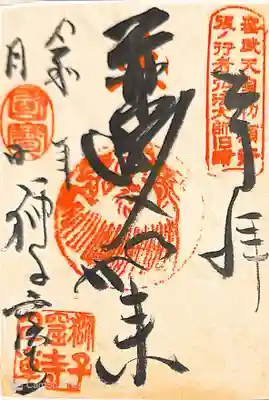 聖武天皇勅願
役ノ行者弘法大師旧跡
奉拝
薬師如来
令和 年
月 日 獅子窟寺
國寶
獅子
窟寺